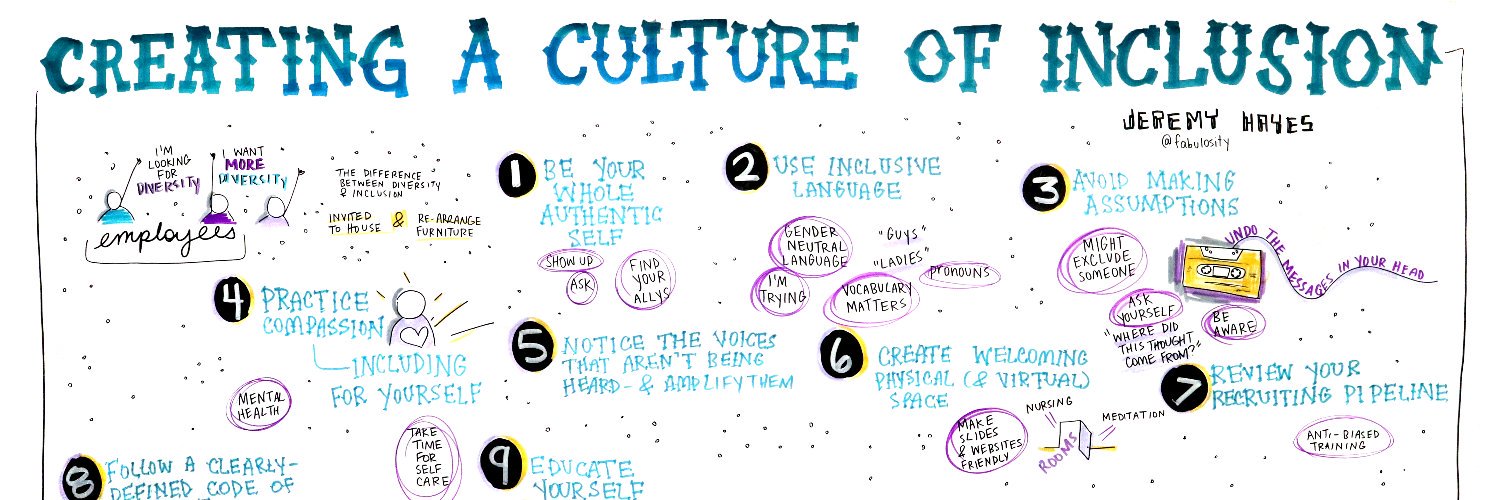 CREATING A CULTURE OF INCLUSION
JEREMY HAYES
@fabulosity
I'M
LOOKING
FOR
DIVERSITY
I WANT
MORE
DIVERSITY
employees
THE DIFFERENCE
BETWEEN DIVERSITY
& INCLUSION
INVITED
TO HOUSE
&
RE-ARRANGE
FURNITURE
1 BE YOUR
WHOLE
AUTHENTIC
SELF
SHOW UP
ASK
FIND
YOUR
ALLYS
2 USE INCLUSIVE
LANGUAGE
GENDER
NEUTRAL
LANGUAGE
"GUYS"
"LADIES"
PRONOUNS
I'M
TRYING
VOCABULARY
MATTERS
3 AVOID MAKING
ASSUMPTIONS
MIGHT
EXCLUDE
SOMEONE
UNDO THE MESSAGES IN YOUR HEAD
ASK
YOURSELF
"WHERE DID
THIS THOUGHT
COME FROM?"
BE
AWARE
4 PRACTICE
COMPASSION
INCLUDING
FOR YOURSELF
MENTAL
HEALTH
TAKE
TIME
FOR
SELF
CARE
5 NOTICE THE VOICES
THAT AREN'T BEING
HEARD - & AMPLIFY THEM
6 CREATE WELCOMING
PHYSICAL (& VIRTUAL)
SPACE
MAKE
SLIDES
& WEBSITES
FRIENDLY
NURSING
MEDITATION
ROOMS
7 REVIEW YOUR
RECRUITING PIPELINE
ANTI-BIASED
TRAINING
8 FOLLOW A CLEARLY-
DEFINED CODE OF
9 EDUCATE
YOURSELF